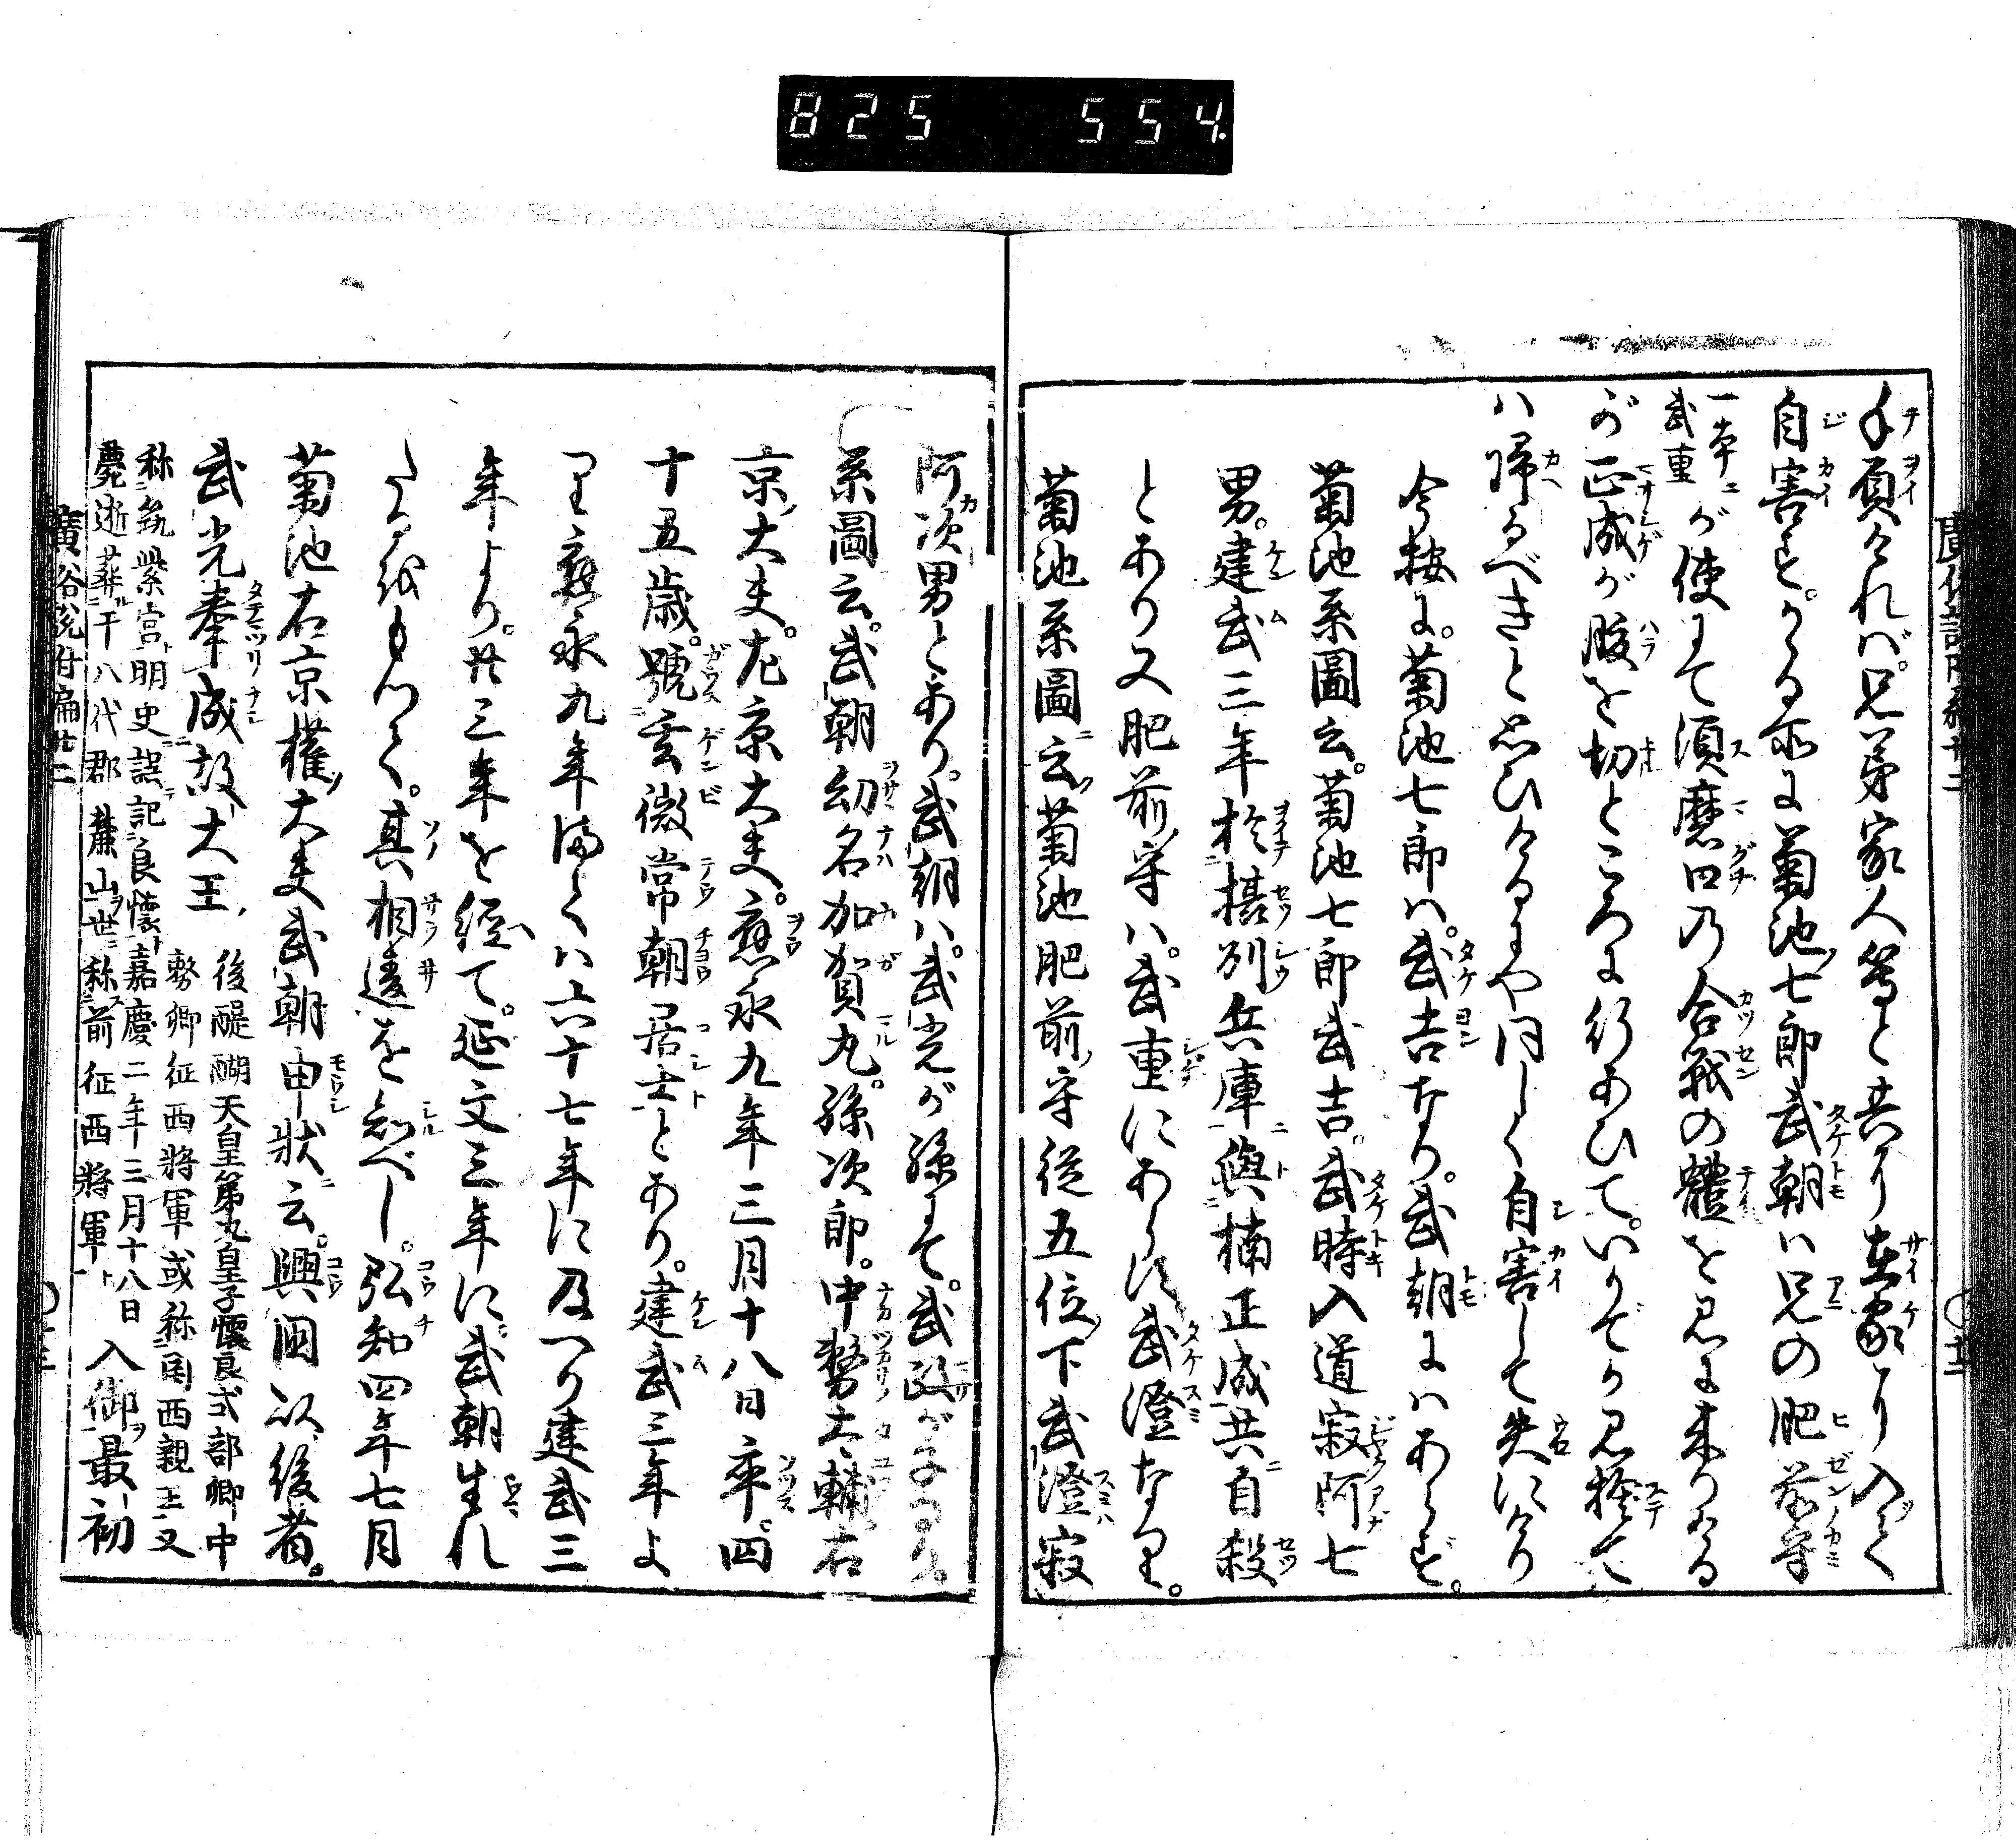 825 554
手負ければ兄弟家人等と共に在家に入て
自害すかゝる所に菊池七郎武朝ハ兄の肥前守
一本ニ武重が使にて須磨口の合戦の體を見に来りける
が正成が腹を切ところに行あひていかでか見捨て
ハ帰るべきと思ひけるにや同しく自害して失にけり
今按に。菊池七郎ハ。武吉なり。武朝にハあらず。
菊池系圖云。菊池七郎武吉。武時入道寂阿七
男。建武三年於摂列兵庫與楠正成共自殺
とあり又肥前守ハ。武重にあらず武澄なり。
菊池系圖云菊池肥前守従五位下武澄寂
阿次男とあり。武朝ハ。武光が孫にて。武政が子なり。
系圖云。武朝幼名加賀丸。孫次郎。中務大輔右
京大夫。左京大夫。應永九年三月十八日卒。四
十五歳。號玄微常朝居士とあり。建武三年よ
り應永九年まてハ六十七年に及へり建武三
年より。廿三年を經て。延文三年に。武朝生れ
たるをもつて。其相違を知べし。弘和四年七月
菊池右京權大夫武朝申狀云。興國以後者。
武光奉成故大王、後醍醐天皇第九皇子懷良式部卿中
務卿征西將軍或称關西親王又
称筑紫宮明史誤記良懷嘉慶二年三月十八日
薨逝葬于八代郡麓山世称前征西將軍入御最初
廣益俗說附編廿二